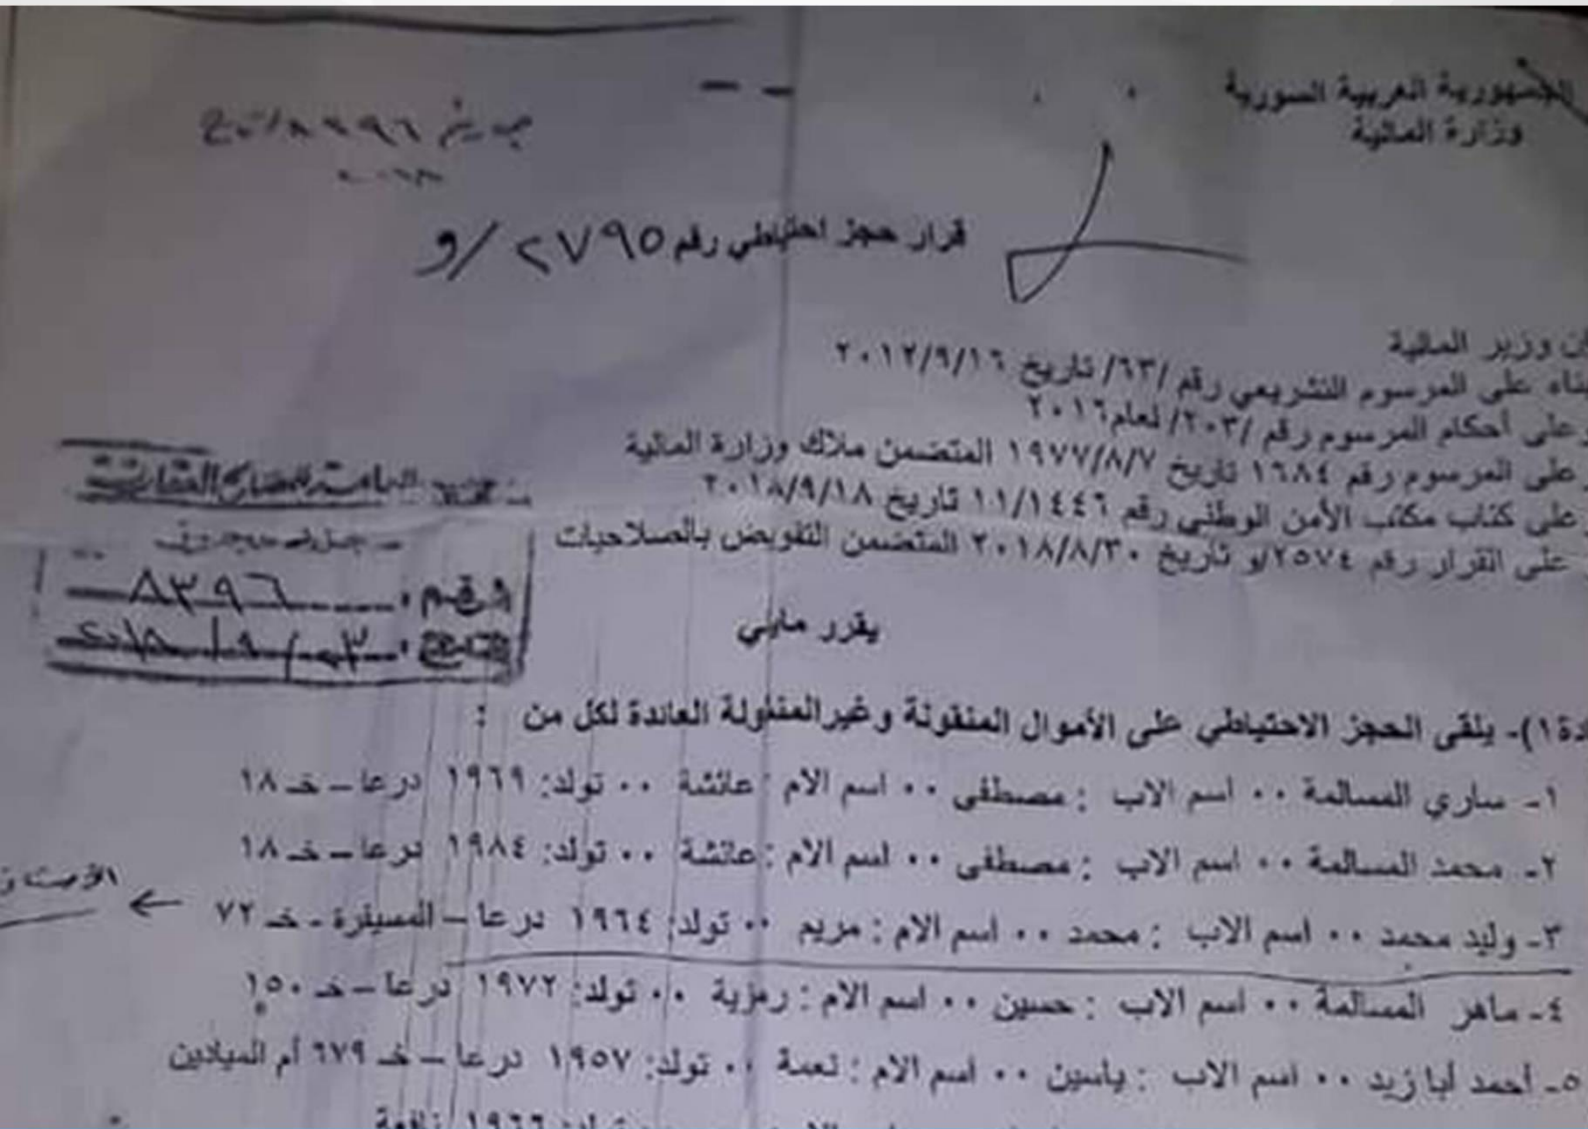 الجمهورية العربية السورية
وزارة المالية
٢٠١٨
قرار حجز احتياطي رقم ٢٧٩٥ /و
ان وزير المالية
بناء على المرسوم التشريعي رقم /٦٣/ تاريخ ٢٠١٢/٩/١٦
وعلى أحكام المرسوم رقم /٢٠٣/ لعام ٢٠١٦
وعلى المرسوم رقم ١٦٨٤ تاريخ ١٩٧٧/٨/٧ المتضمن ملاك وزارة المالية
وعلى كتاب مكتب الأمن الوطني رقم ١١/١٤٤٦ تاريخ ٢٠١٨/٩/١٨
على القرار رقم ٢٥٧٤/و تاريخ ٢٠١٨/٨/٣٠ المتضمن التفويض بالصلاحيات
العامة للمصالح العقارية
رقم : ٨٣٩٦
يقرر مايلي
دة١)- يلقى الحجز الاحتياطي على الأموال المنقولة وغيرالمنقولة العائدة لكل من :
١- ساري المسالمة ٠٠ اسم الاب : مصطفى ٠٠ اسم الام : عائشة ٠٠ تولد: ١٩٦٩ درعا – خـ ١٨
٢- محمد المسالمة ٠٠ اسم الاب : مصطفى ٠٠ اسم الام : عائشة ٠٠ تولد: ١٩٨٤ درعا – خـ ١٨
٣- وليد محمد ٠٠ اسم الاب : محمد ٠٠ اسم الام : مريم ٠٠ تولد: ١٩٦٤ درعا – المسيفرة - خـ ٧٢
٤- ماهر المسالمة ٠٠ اسم الاب : حسين ٠٠ اسم الام : رمزية ٠٠ تولد: ١٩٧٢ درعا – خـ ١٥٠
٥- أحمد أبا زيد ٠٠ اسم الاب : ياسين ٠٠ اسم الام : نعمة ٠٠ تولد: ١٩٥٧ درعا – خـ ٦٧٩ أم الميادين